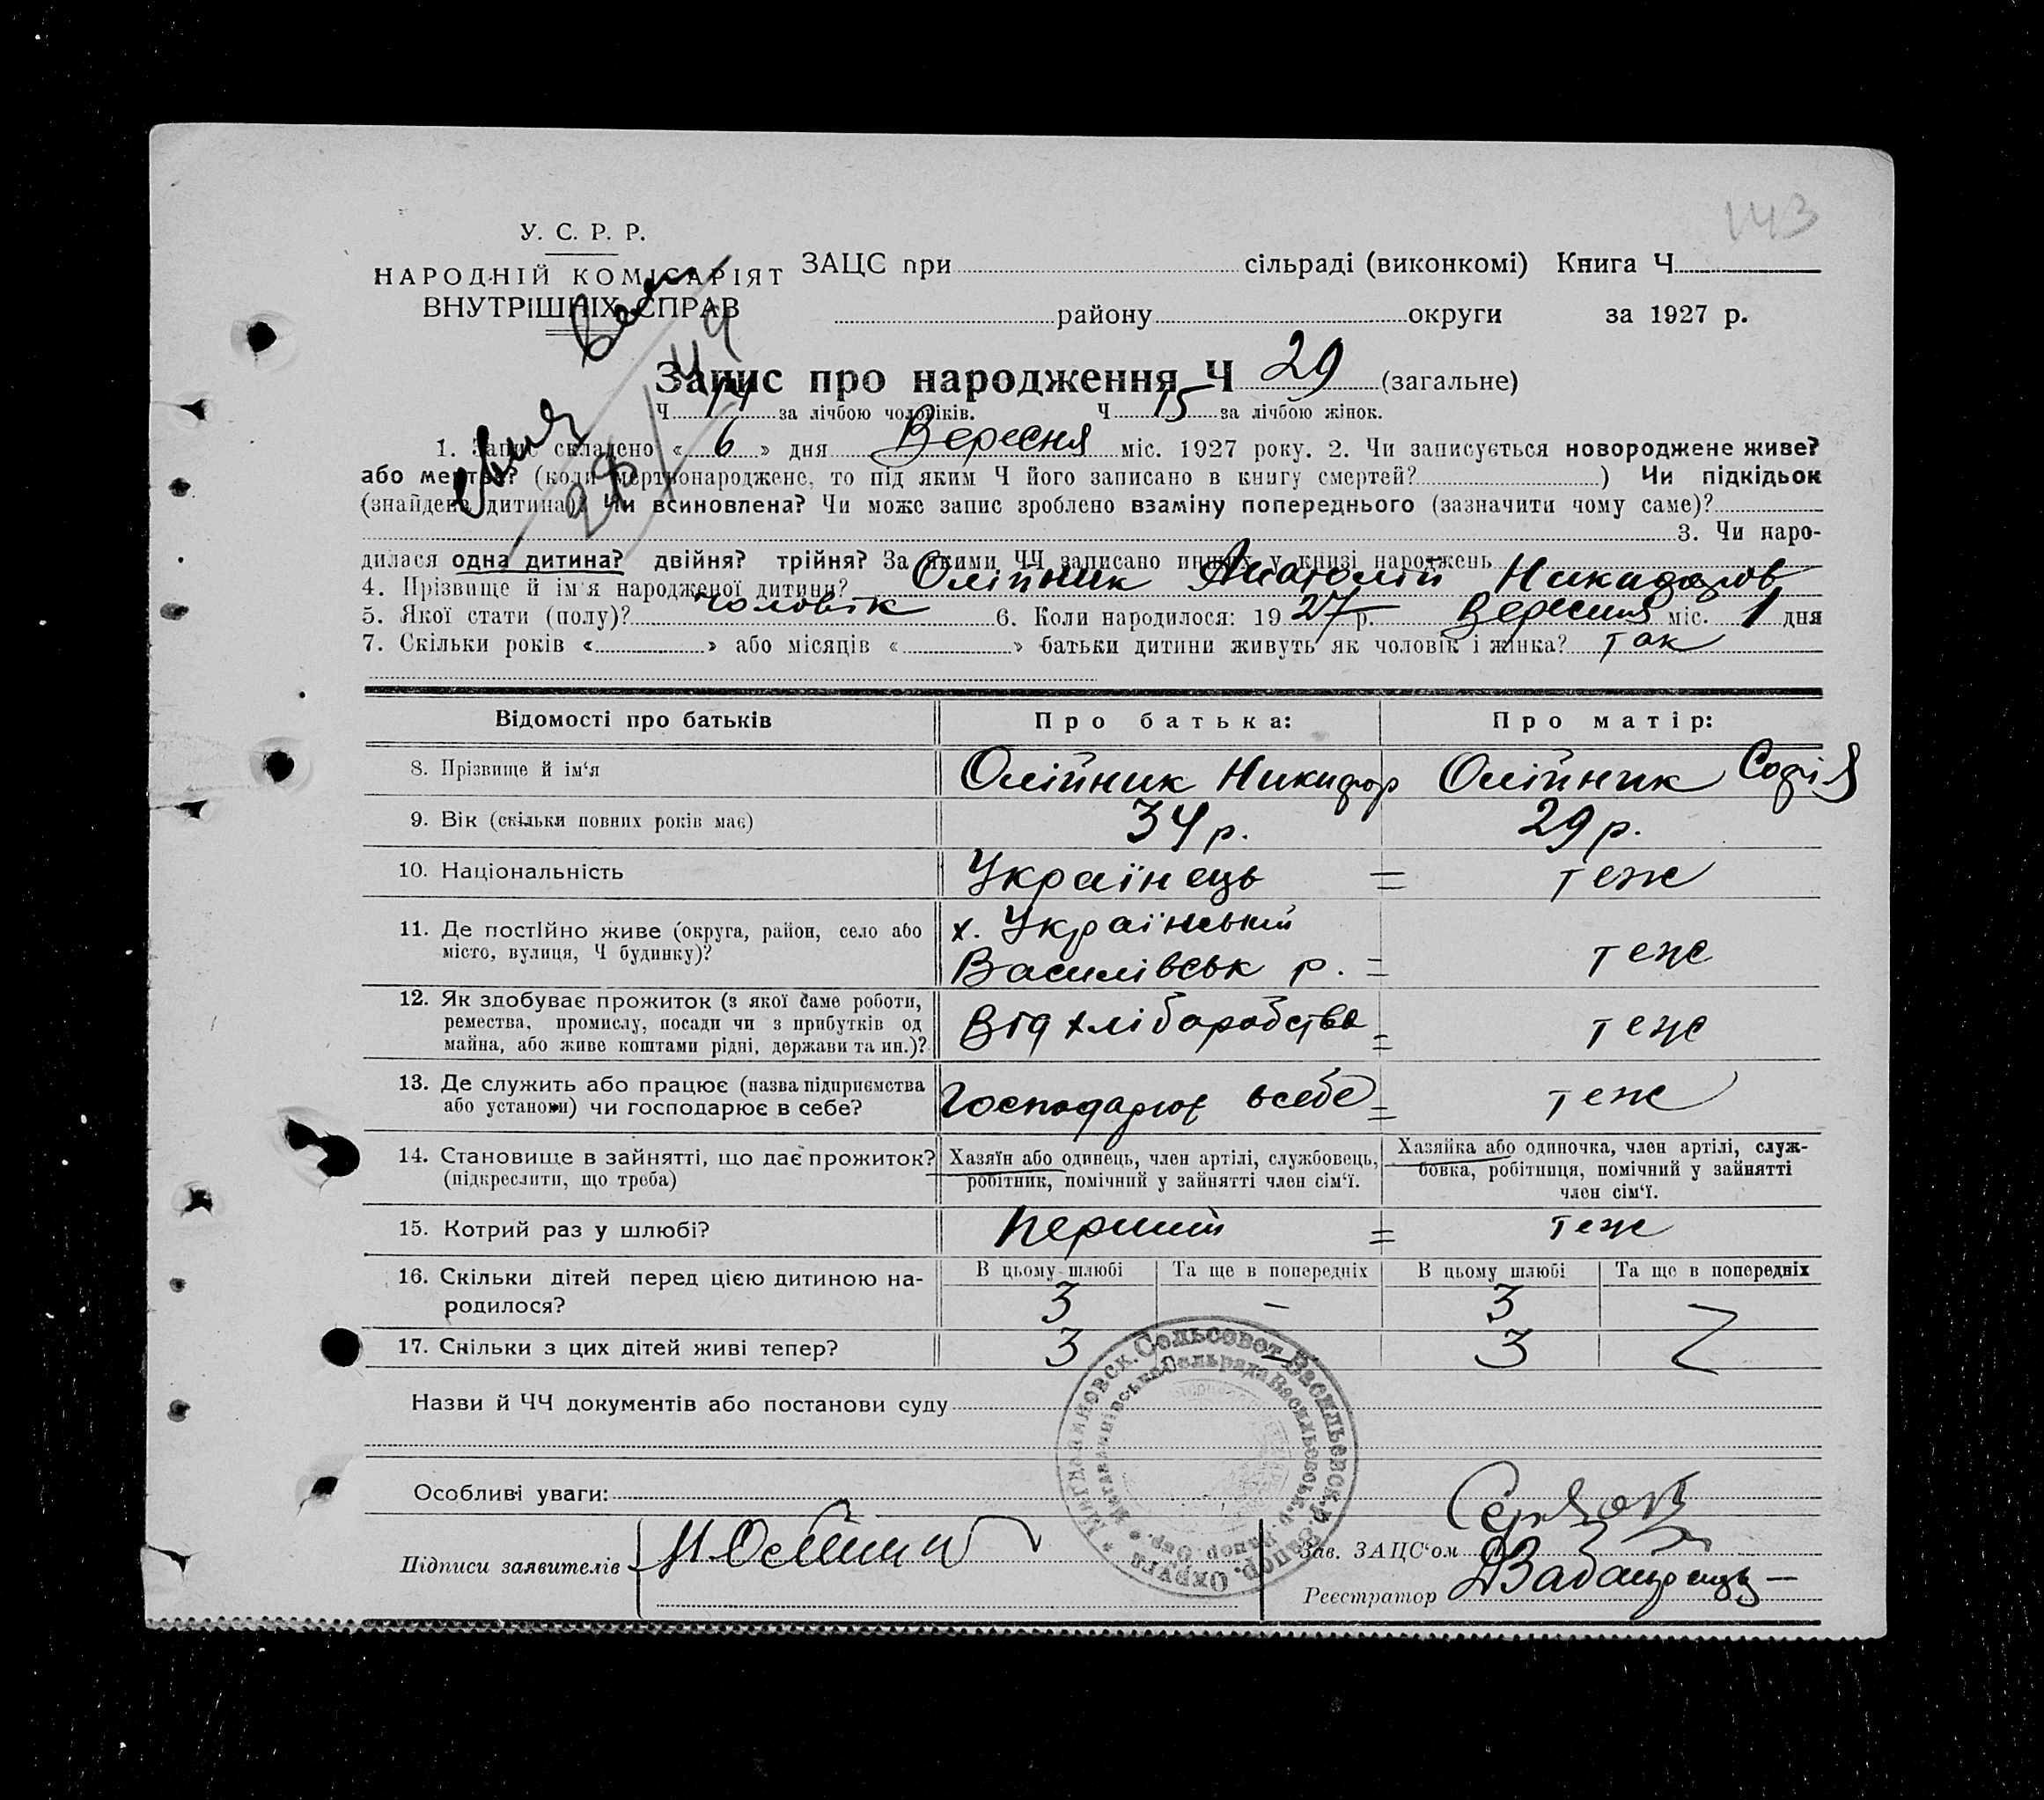 143
У. С. Р. Р.
НАРОДНІЙ КОМІСАРІЯТ
ВНУТРІШНІХ СПРАВ
ЗАЦС при сільраді (виконкомі) Книга Ч
району округи за 1927 р.
Запис про народження Ч 29 (загальне)
Ч 14 за лічбою чоловіків. Ч 15 за лічбою жінок.
1. Запис складено « 6 » дня Вересня міс. 1927 року. 2. Чи записується новороджене живе?
або мертве? (коли мертвонароджене, то під яким Ч його записано в книгу смертей? ) Чи підкідьок
(знайдена дитина)? Чи всиновлена? Чи може запис зроблено взаміну попереднього (зазначити чому саме)?
3. Чи наро-
дилася одна дитина? двійня? трійня? За якими ЧЧ записано инших у книзі народжень
4. Прізвище й ім'я народженої дитини? Олійник Анатолій Никифоров
5. Якої стати (полу)? чоловік 6. Коли народилося: 1927 р. Вересня міс. 1 дня
7. Скільки років « » або місяців « » батьки дитини живуть як чоловік і жінка? так
Відомості про батьків Про батька: Про матір:
8. Прізвище й ім'я Олійник Никифор Олійник Софія
9. Вік (скільки повних років має) 34 р. 29 р.
10. Національність Українець = теж
11. Де постійно живе (округа, район, село або х. Український
місто, вулиця, Ч будинку)? Василівськ р. = теж
12. Як здобуває прожиток (з якої саме роботи,
ремества, промислу, посади чи з прибутків од Від хліборобства = теж
майна, або живе коштами рідні, держави та ин.)?
13. Де служить або працює (назва підприємства
або установи) чи господарює в себе? Господарює всебе = теж
14. Становище в зайнятті, що дає прожиток? Хазяїн або одинець, член артілі, службовець, Хазяйка або одиночка, член артілі, служ-
(підкреслити, що треба) робітник, помічний у зайнятті член сім'ї. бовка, робітниця, помічний у зайнятті
член сім'ї.
15. Котрий раз у шлюбі? перший = теж
16. Скільки дітей перед цією дитиною на- В цьому шлюбі Та ще в попередніх В цьому шлюбі Та ще в попередніх
родилося? 3 – 3
17. Скільки з цих дітей живі тепер? 3 – 3
Назви й ЧЧ документів або постанови суду
Особливі уваги:
Підписи заявителів
Зав. ЗАЦС'ом
Реєстратор
Сельсовет Васильевск. р. Запор. Округа
Сельрада Васильевськ. р. Запор. Окр.